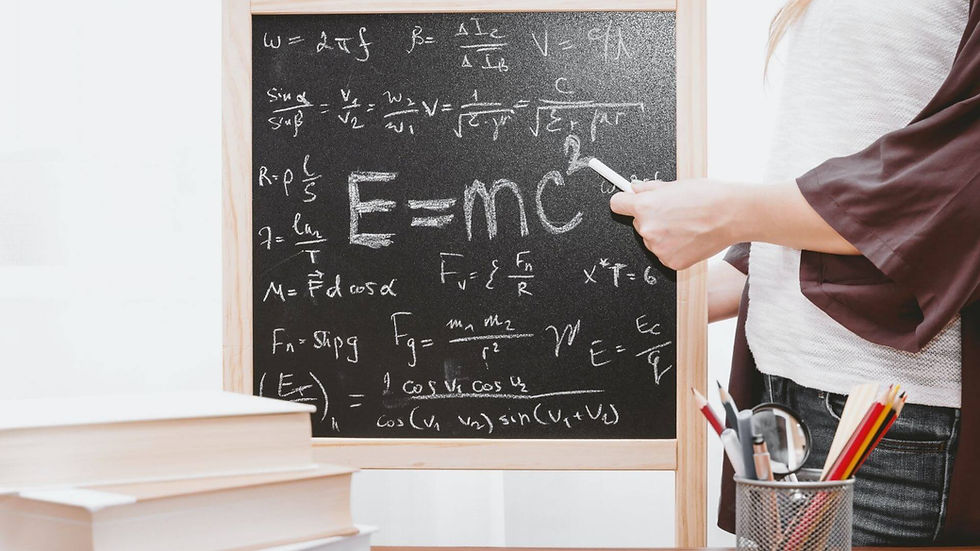 ω = 2πf β = ΔI_c / ΔI_B V = c/λ
sin α / sin β = v₁ / v₂ = w₂ / w₁ V = 1 / √(ε·μ) = c / √(εr μr)
R = ρ l / S
E = mc²
λ = ln 2 / T
Fv = { Fn / R x*T = 6
M = F d cos α
Fn = Shpg Fg = m₁ m₂ / r² E = Ec / q
= 1 cos v₁ cos v₂ / cos(v₁ v₂) sin(v₁ + v₂)